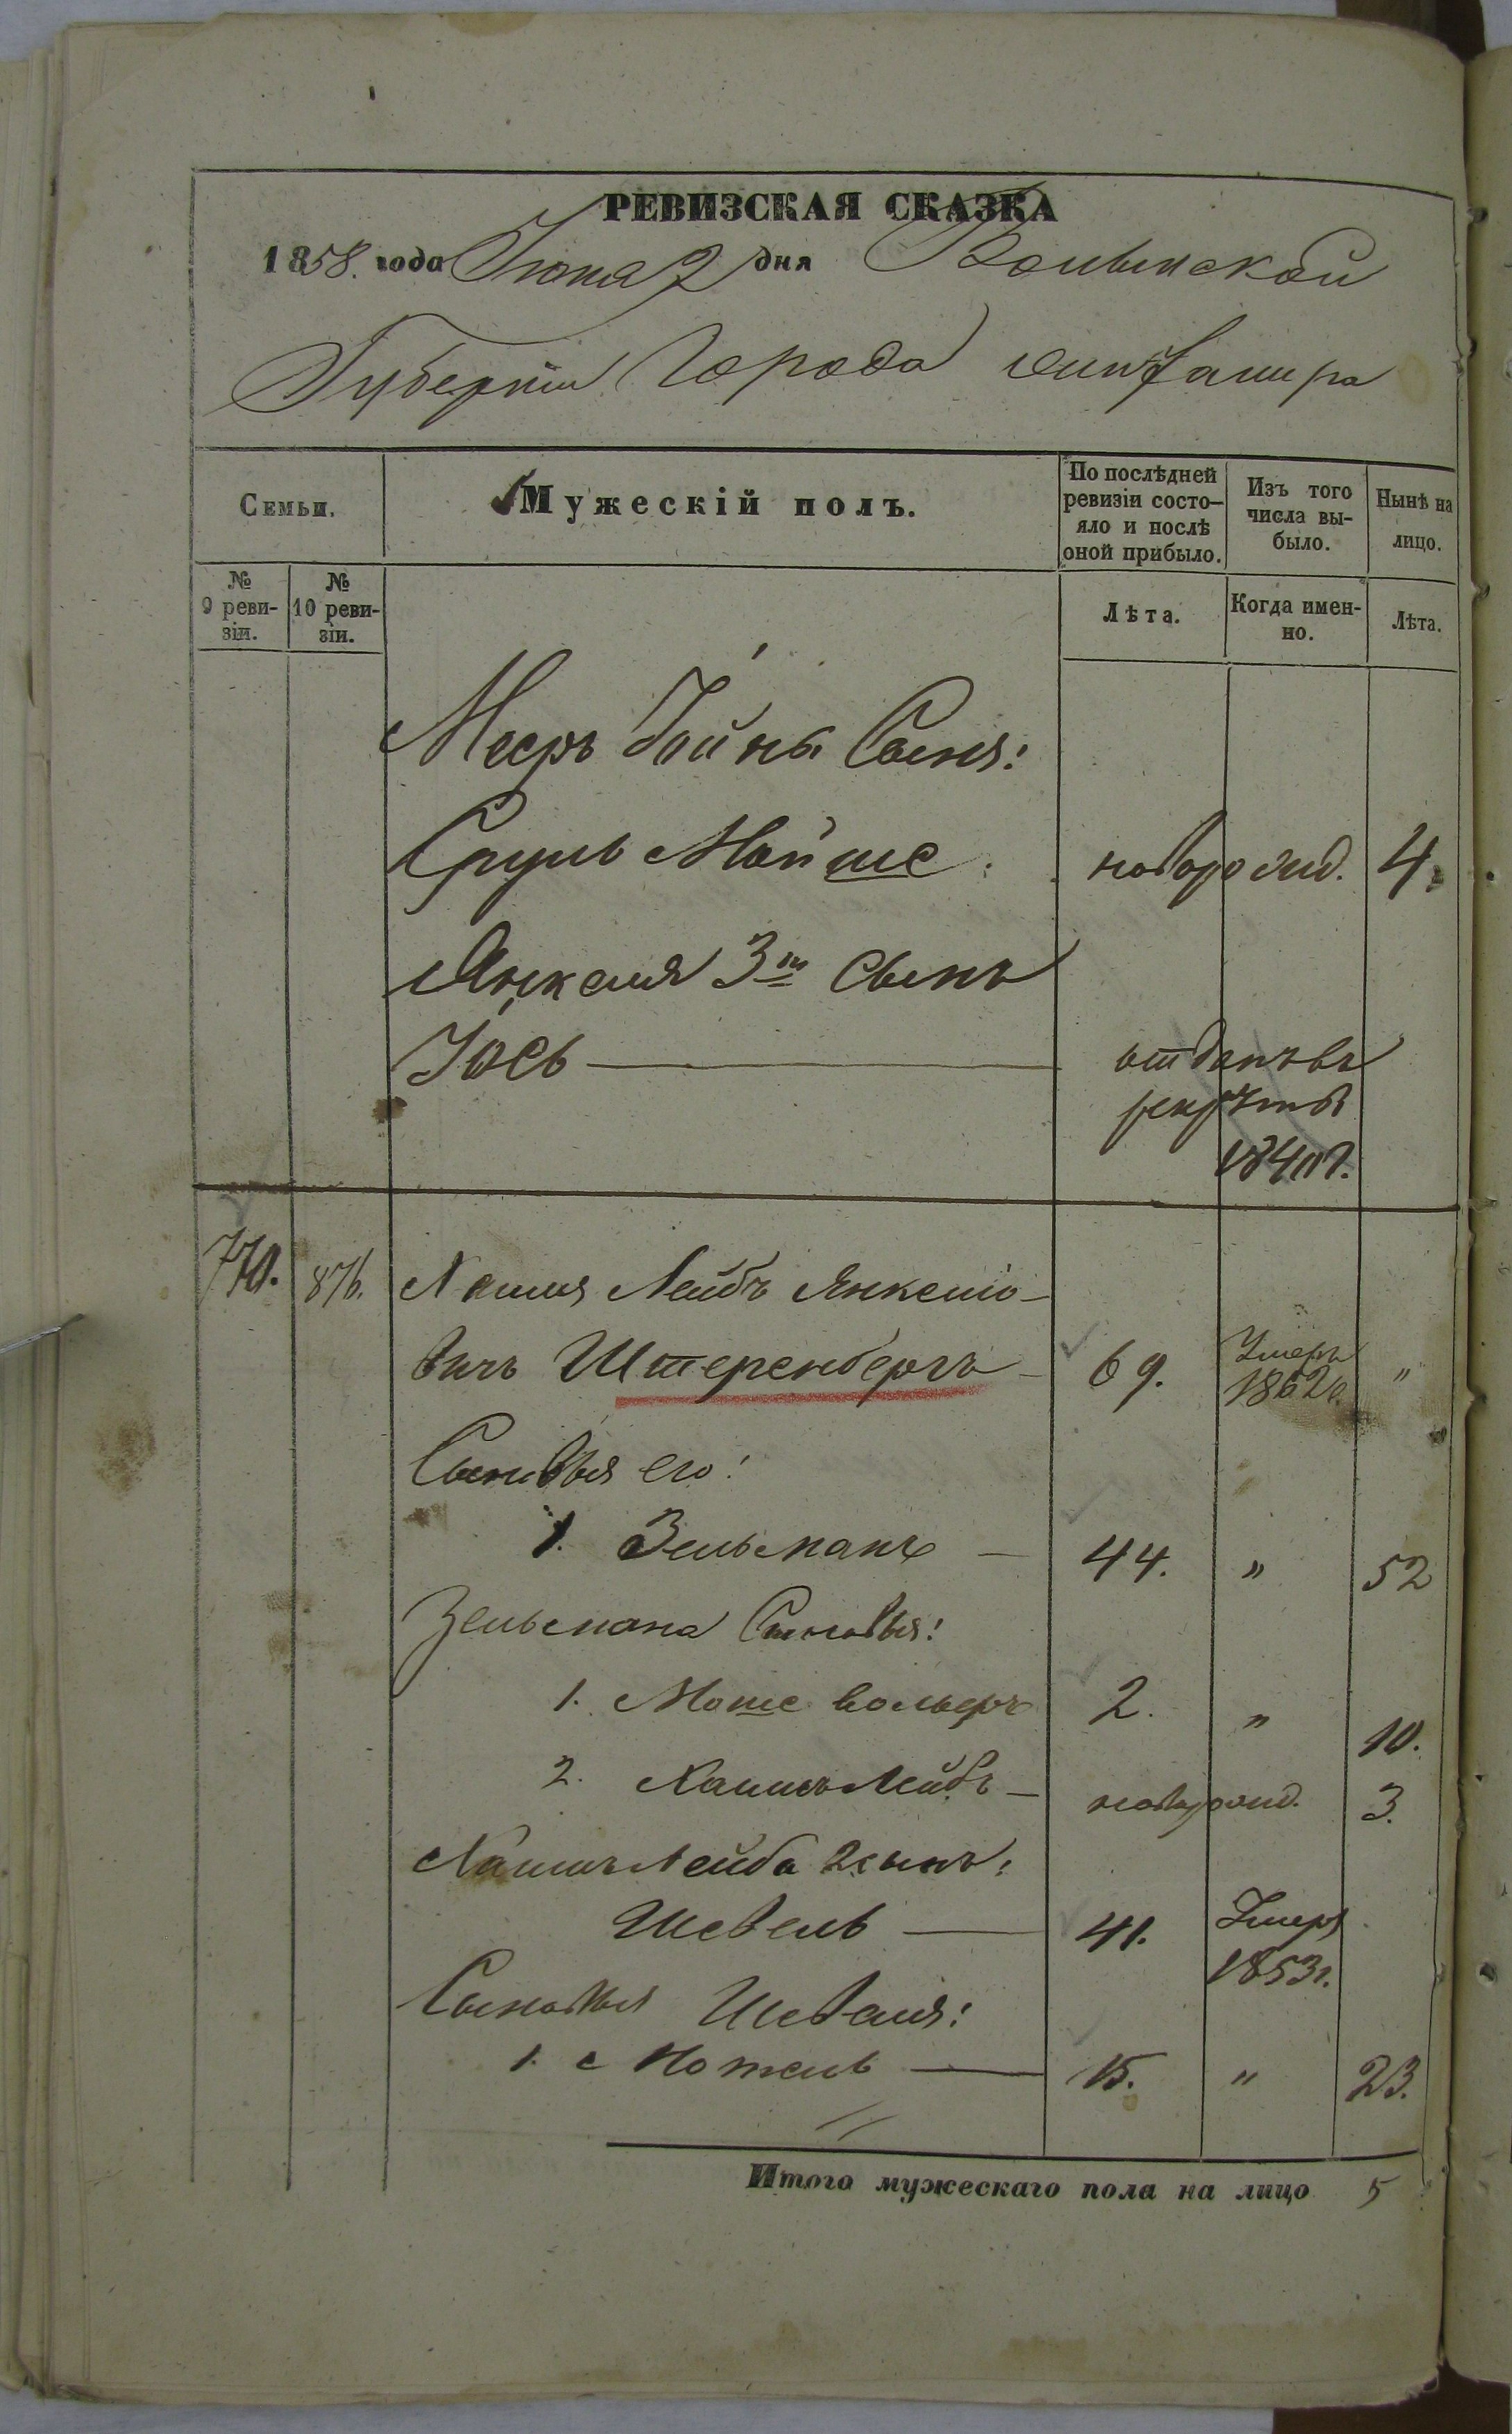 РЕВИЗСКАЯ СКАЗКА
1858. года Іюня 2 дня Волынской
Губерніи Города Житомира
Семьи.
Мужескій полъ.
По послѣдней ревизіи состо-яло и послѣ оной прибыло.
Изъ того числа вы-было.
Нынѣ на лицо.
№ 9 реви-зіи.
№ 10 реви-зіи.
Лѣта.
Когда имен-но.
Лѣта.
Мееръ Сынъ:
Сруль Мойше новорожд. 4.
Янкеля 3й сынъ
Іось отданъ въ
рекруты
184
770. 876. Лейбъ Янкеліо-
вичъ Штеренбергъ - 69. Умеръ "
Сыновья его:
1. Зельманъ - 44. " 52
Зельмана Сыновья:
1. Моше 2. " 10.
2. Лейбъ - новорожд. 3.
Лейба 2 сынъ:
Шевель 41. Умеръ
1853г.
Сыновья Шевеля:
1. Мотель 15. " 23.
Итого мужескаго пола на лицо 5